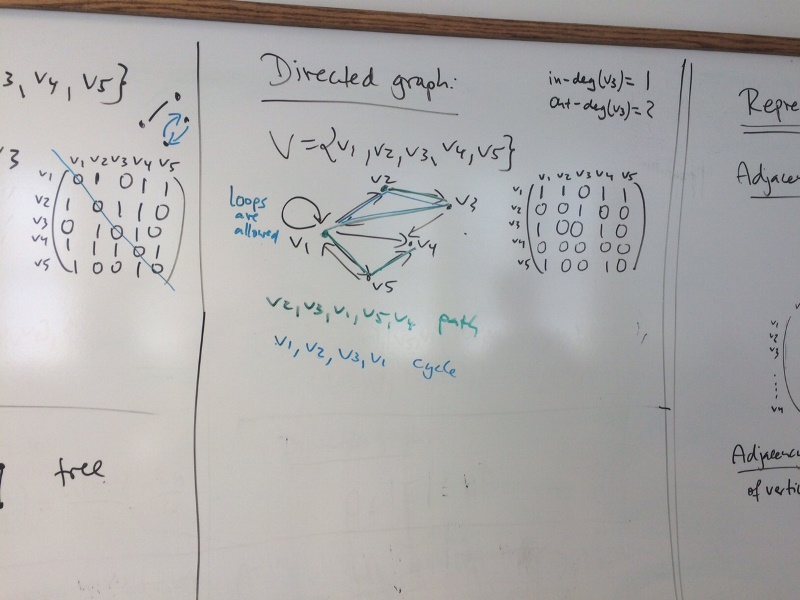 3, V4, V5}
V3
V1 V2 V3 V4 V5
V1 0 1 0 1 1
V2 1 0 1 1 0
V3 0 1 0 1 0
V4 1 1 1 0 1
V5 1 0 0 1 0
tree
Directed graph:
in-deg(V3) = 1
out-deg(V3) = 2
V = {V1, V2, V3, V4, V5}
Loops
are
allowed
V2
V3
V1
V4
V5
V1 V2 V3 V4 V5
V1 1 1 0 1 1
V2 0 0 1 0 0
V3 1 0 0 1 0
V4 0 0 0 0 0
V5 1 0 0 1 0
V2, V3, V1, V5, V4 path
V1, V2, V3, V1 cycle
Repre
Adjacen
V1
V2
V3
Adjacency
of vertic